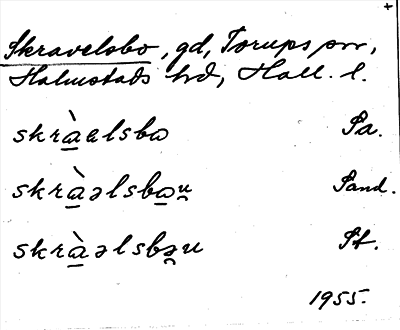 Skravelsbo, gd, Torups sn,
Halmstads hd, Hall. l.
skrà̲aelsbo Sa.
skrà̲əlsbo̲u̯ Sand.
skrà̲əlsbə̯u St.
1955.